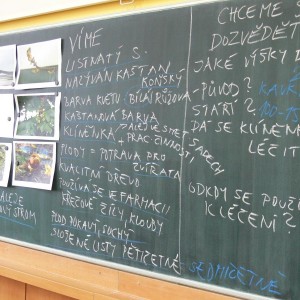 VÍME
LISTNATÝ S.
NAZÝVÁN KAŠTAN
KOŇSKÝ
BARVA KVĚTU: BÍLÁ/RŮŽOVÁ
KAŠTANOVÁ BARVA
KLÍNĚNKA
ALEJE
PLODY = POTRAVA PRO
ZVÍŘATA
KVALITNÍ DŘEVO
POUŽÍVÁ SE VE FARMACII
KŘEČOVÉ ŽÍLY, KLOUBY
PLOD PUKAVÝ, SUCHÝ
SLOŽENÉ LISTY PĚTIČETNÉ
SEDMIČETNÉ
ALEJE
STROM
CHCEME
DOZVĚDĚT
JAKÉ VÝŠKY D
PŮVOD?
STÁŘÍ?
DÁ SE KLÍNĚN
LÉČIT
ODKDY SE POUŽ
K LÉČENÍ?